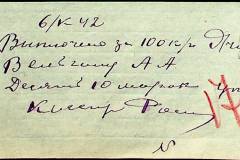 б/к 42
Выплочено за 100 к/г
Вельгаму А А
Десять 10 марок
Кассир
17
№